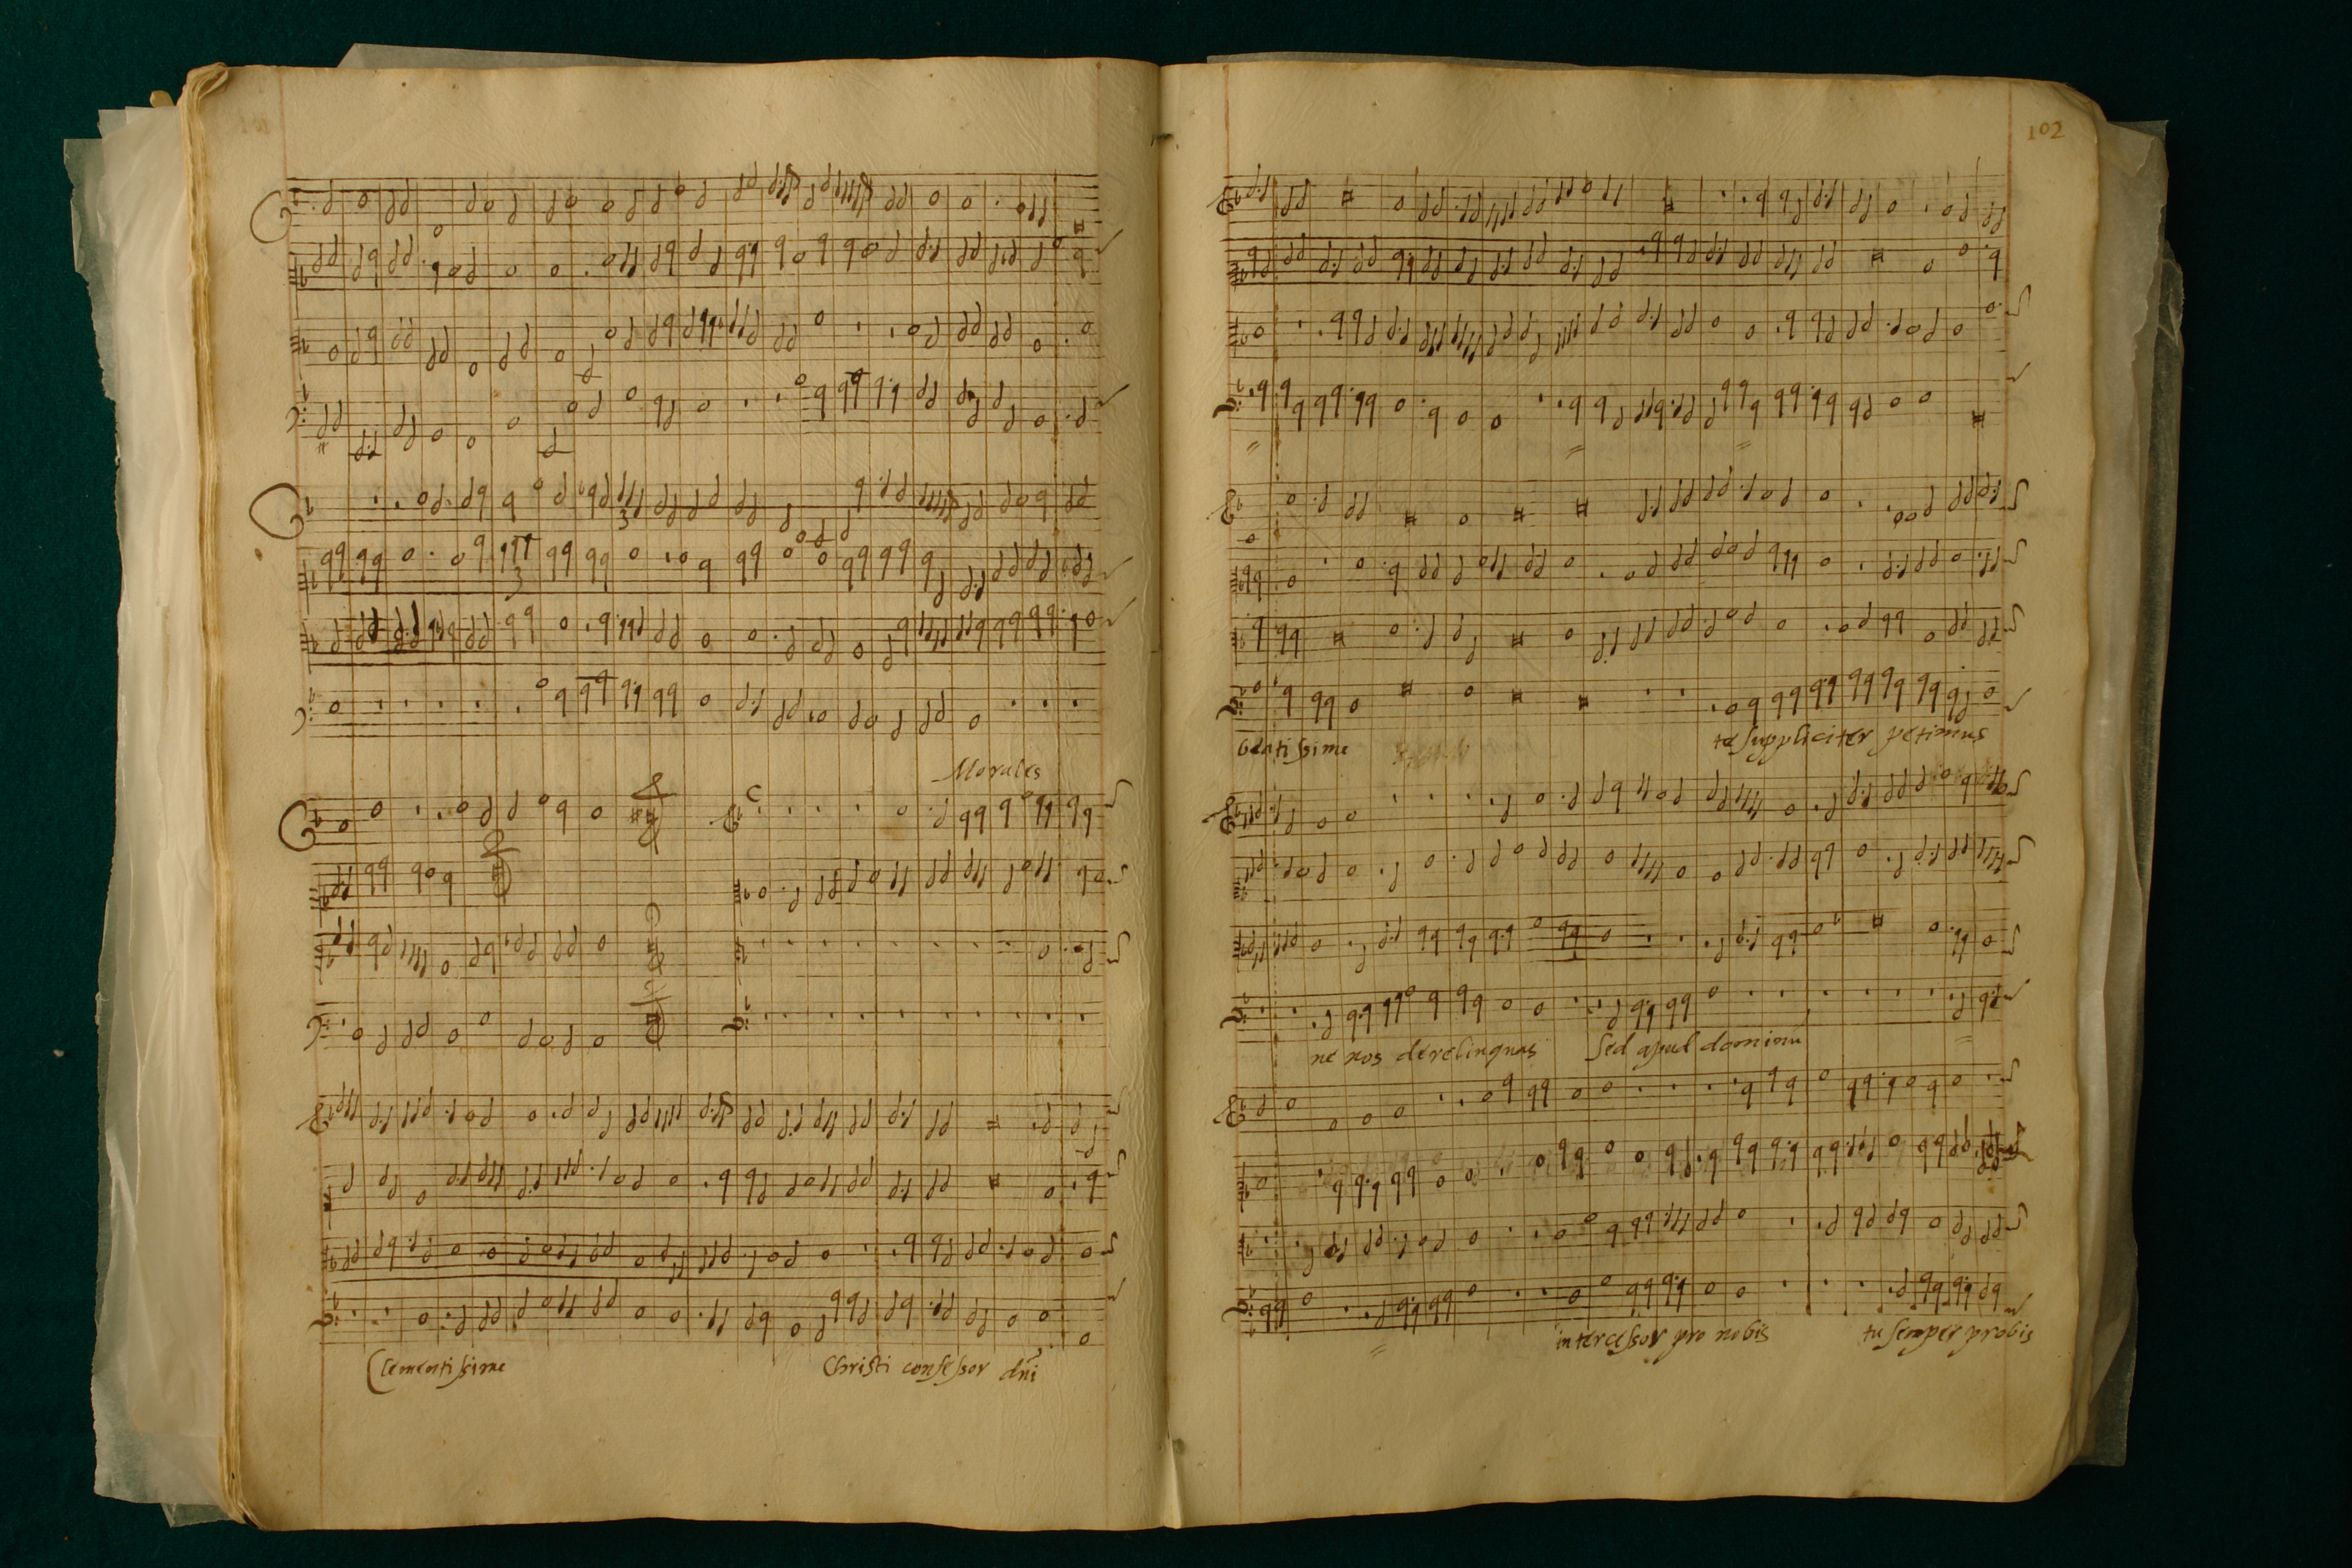 Morales
Clementissime Christi confessor dñi
102
beatissime te suppliciter petimus
ne nos derelinquas Sed apud dominū
intercessor pro nobis tu semper probis